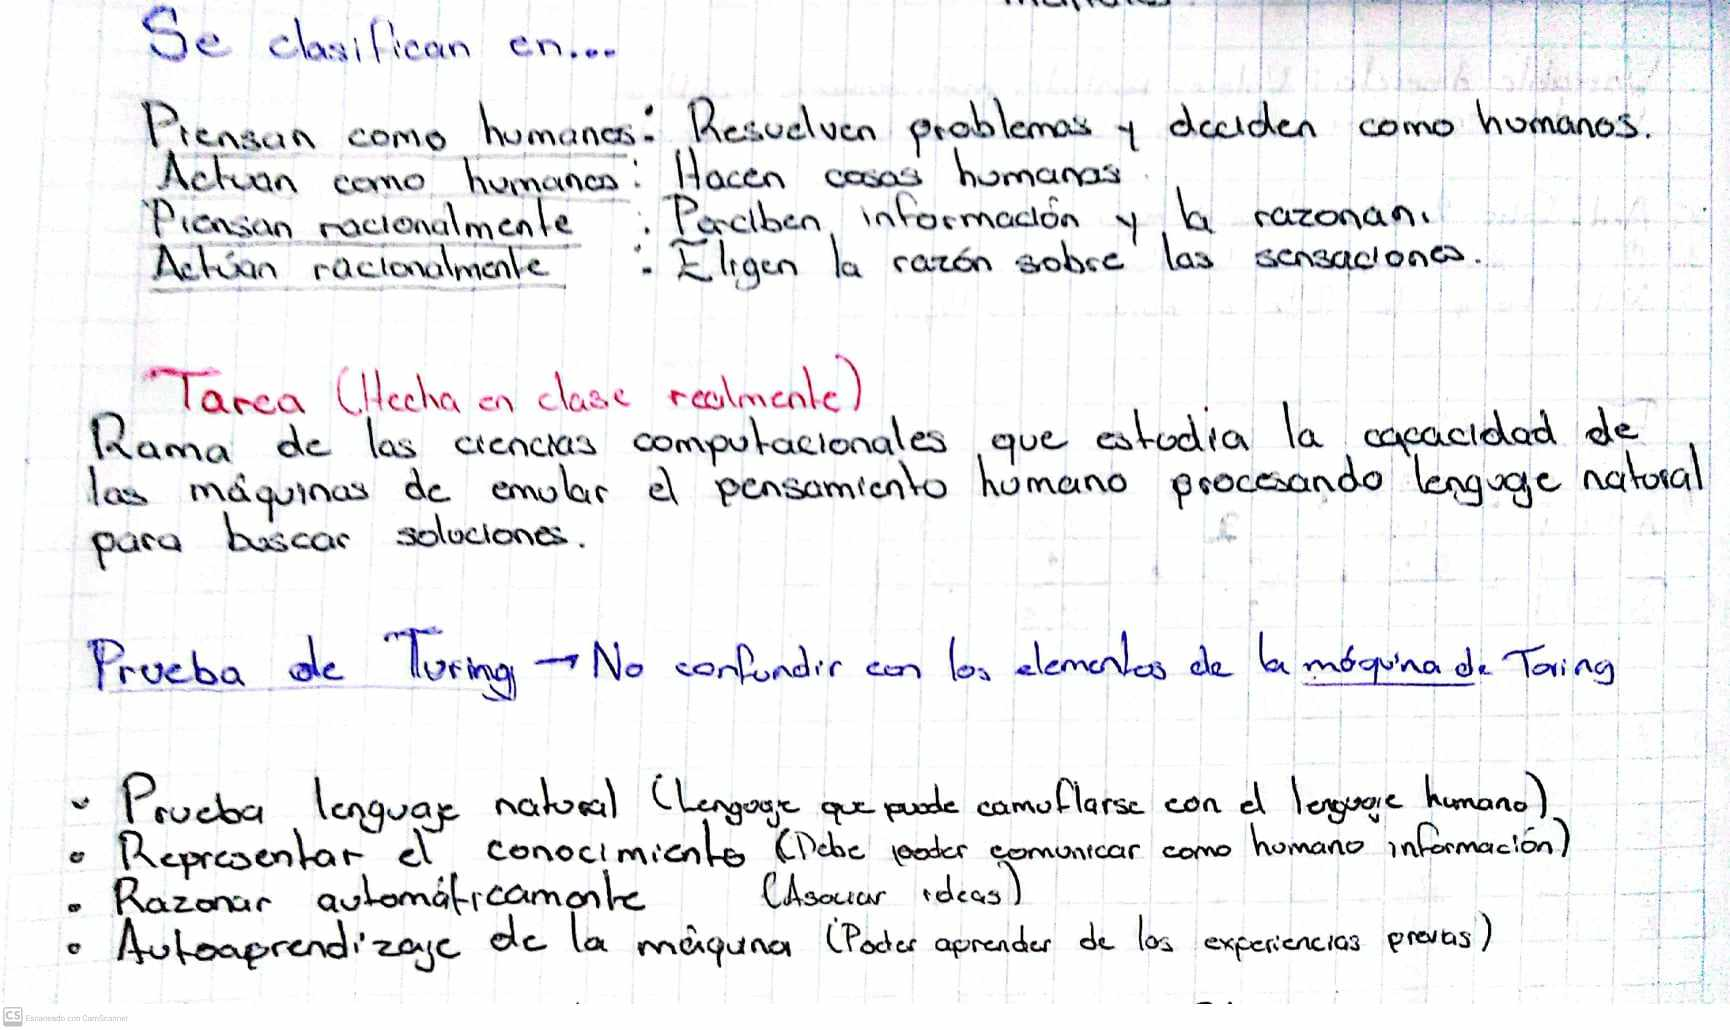 Se clasifican en...
Piensan como humanos: Resuelven problemas y deciden como humanos.
Actuan como humanos: Hacen cosas humanas
Piensan racionalmente : Perciben información y la razonan.
Actúan racionalmente : Eligen la razón sobre las sensaciones.
Tarea (Hecha en clase realmente)
Rama de las ciencias computacionales que estudia la capacidad de
las máquinas de emular el pensamiento humano procesando lenguage natural
para buscar soluciones.
Prueba de Turing → No confundir con los elementos de la máquina de Turing
• Prueba lenguaje natural (Lenguage que puede camuflarse con el lenguage humano)
• Representar el conocimiento (Debe poder comunicar como humano información)
• Razonar automáticamente (Asociar ideas)
• Autoaprendizaje de la máquina (Poder aprender de las experiencias previas)
CS Escaneado con CamScanner